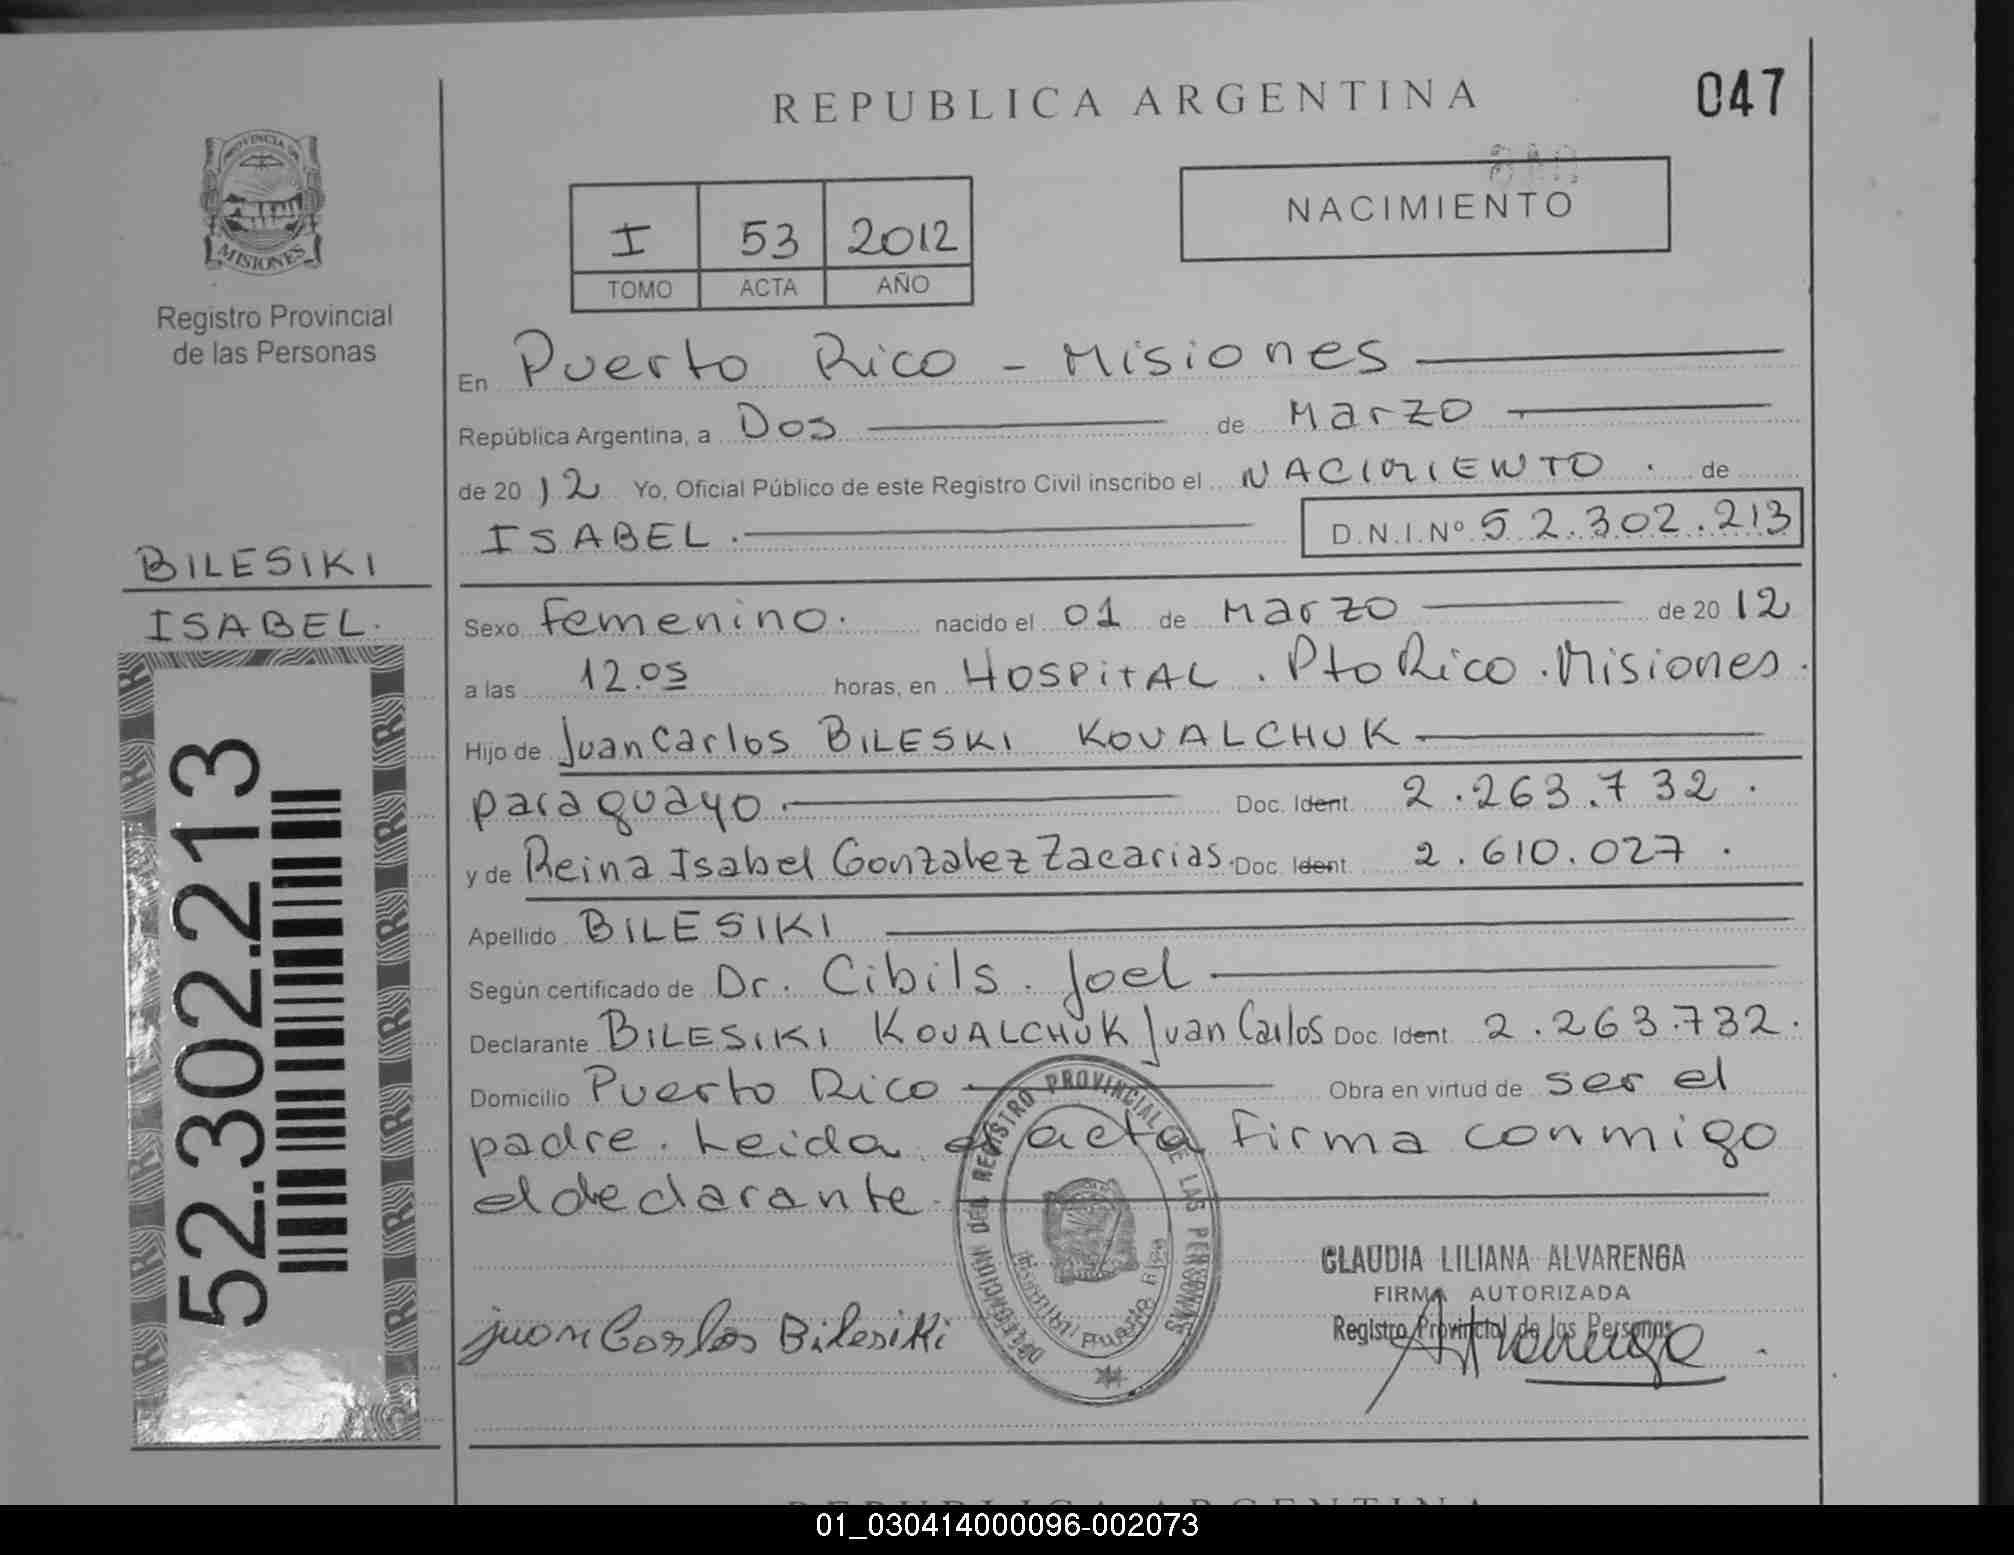 REPUBLICA ARGENTINA
047
PROVINCIA DE
MISIONES
Registro Provincial
de las Personas
I 53 2012
TOMO ACTA AÑO
NACIMIENTO
En Puerto Rico - Misiones
República Argentina, a Dos de Marzo
de 2012 Yo, Oficial Público de este Registro Civil inscribo el NACIMIENTO . de
ISABEL . D.N.I.Nº 52.302.213
BILESIKI
ISABEL.
52.302.213
Sexo Femenino. nacido el 01 de Marzo de 2012
a las 12.05 horas, en HOSPITAL . Pto Rico . Misiones.
Hijo de Juan Carlos BILESKI KOVALCHUK
paraguayo. Doc. Ident. 2.263.732.
y de Reina Isabel Gonzalez Zacarias. Doc. Ident. 2.610.027.
Apellido BILESIKI
Según certificado de Dr. Cibils. Joel
Declarante BILESIKI KOVALCHUK Juan Carlos Doc. Ident. 2.263.732.
Domicilio Puerto Rico Obra en virtud de ser el
padre. Leida acta firma conmigo
el declarante.
DELEGACION DEL REGISTRO PROVINCIAL DE LAS PERSONAS
CLAUDIA LILIANA ALVARENGA
FIRMA AUTORIZADA
Registro Provincial de las Personas
juan Carlos BilesiKi
REPUBLICA ARGENTINA
01_030414000096-002073